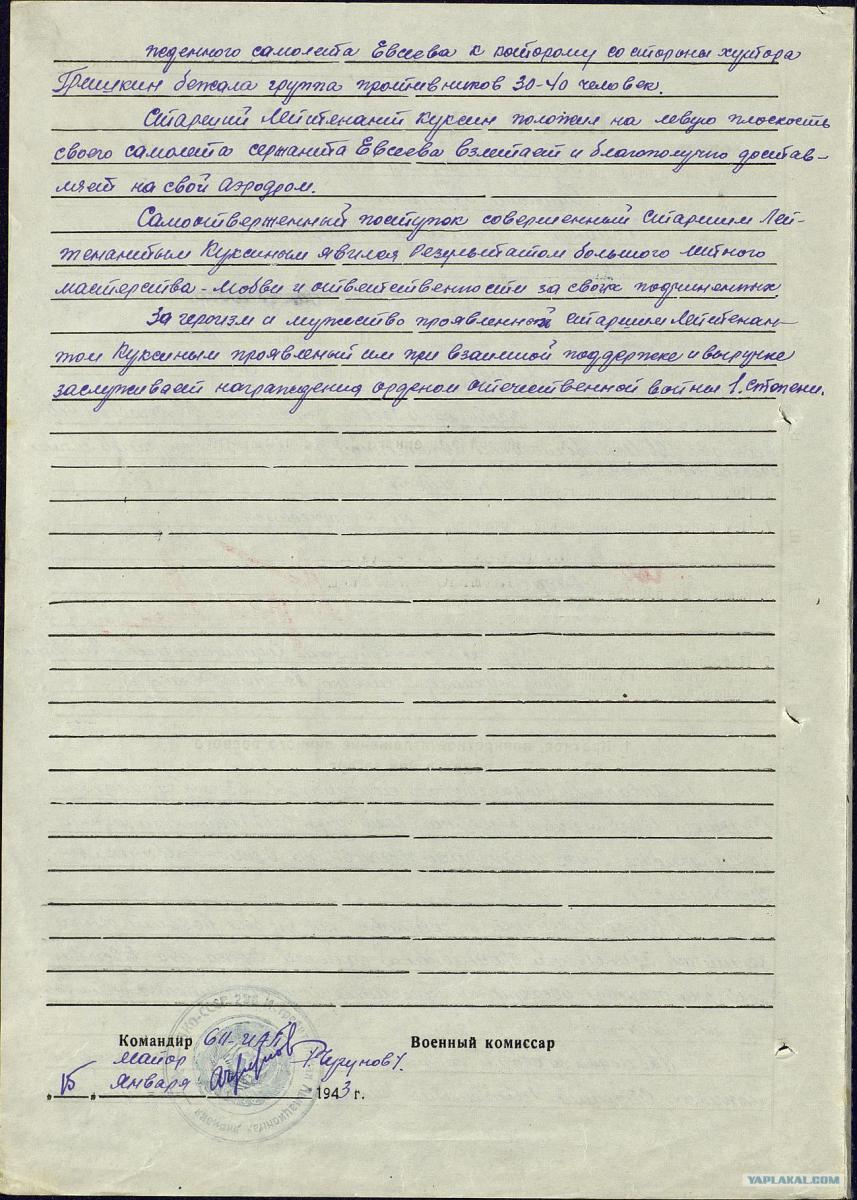 жденного самолета Евсеева к которому со стороны хутора
Гришкин бежала группа противников 30-40 человек.
Старший Лейтенант Куксин положил на левую плоскость
своего самолета сержанта Евсеева взлетает и благополучно достав-
ляет на свой аэродром.
Самоотверженный поступок совершенный Старшим Лей-
тенантым Куксиным явился результатом большого летного
мастерства - любви и ответственности за своих подчиненных.
За героизм и мужество проявленной Старшим Лейтенан-
том Куксиным проявленый им при взаимной поддержке и выручке
заслуживает награждения орденом отечественной войны 1. степени.
Командир 611-ИАП Военный комиссар
майор
„15" Января 1943 г.
YAPLAKAL.COM